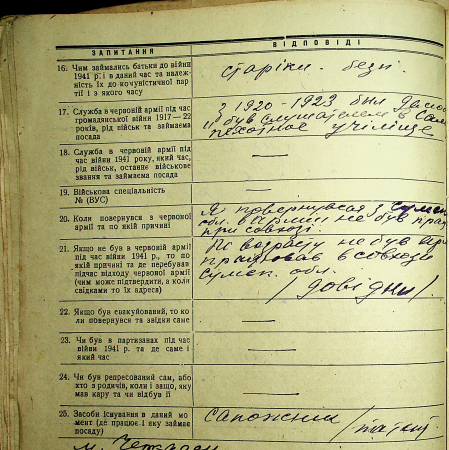 ЗАПИТАННЯ
ВІДПОВІДІ
16. Чим займались батьки до війни
1941 р. і в даний час та належ-
ність їх до комуністичної пар-
тії і з якого часу
старіки. безп.
17. Служба в червоній армії під час
громадянської війни 1917—22
років, рід військ та займаема
посада
З 1920-1923 був
був слушателем в
пехотное учіліще
18. Служба в червоній армії під
час війни 1941 року, який час,
рід військ, останнє військове
звання та займаема посада
—
19. Військова спеціальність
№ (ВУС)
—
20. Коли повернувся з червоної
армії та по якій причині
Я повернувся з Сумск
обл. в армии не був
при совхозі.
21. Якщо не був в червоній армії
під час війни 1941 р., то по
якій причині та де перебував
підчас відходу червоної армії
(чим може підтвердити, а коли
свідками то їх адреса)
По возрасту не був
працював в совхози
Сумск. обл.
/довідки/.
22. Якщо був евакуйований, то ко-
ли повернувся та звідки саме
—
23. Чи був в партизанах під час
війни 1941 р. та де саме і
який час
—
24. Чи був репресований сам, або
хто з родичів, коли і защо, яку
мав кару та чи відбув її
—
25. Засоби існування в даний мо-
мент (де працює і яку займає
посаду)
сапожник /патент
м.